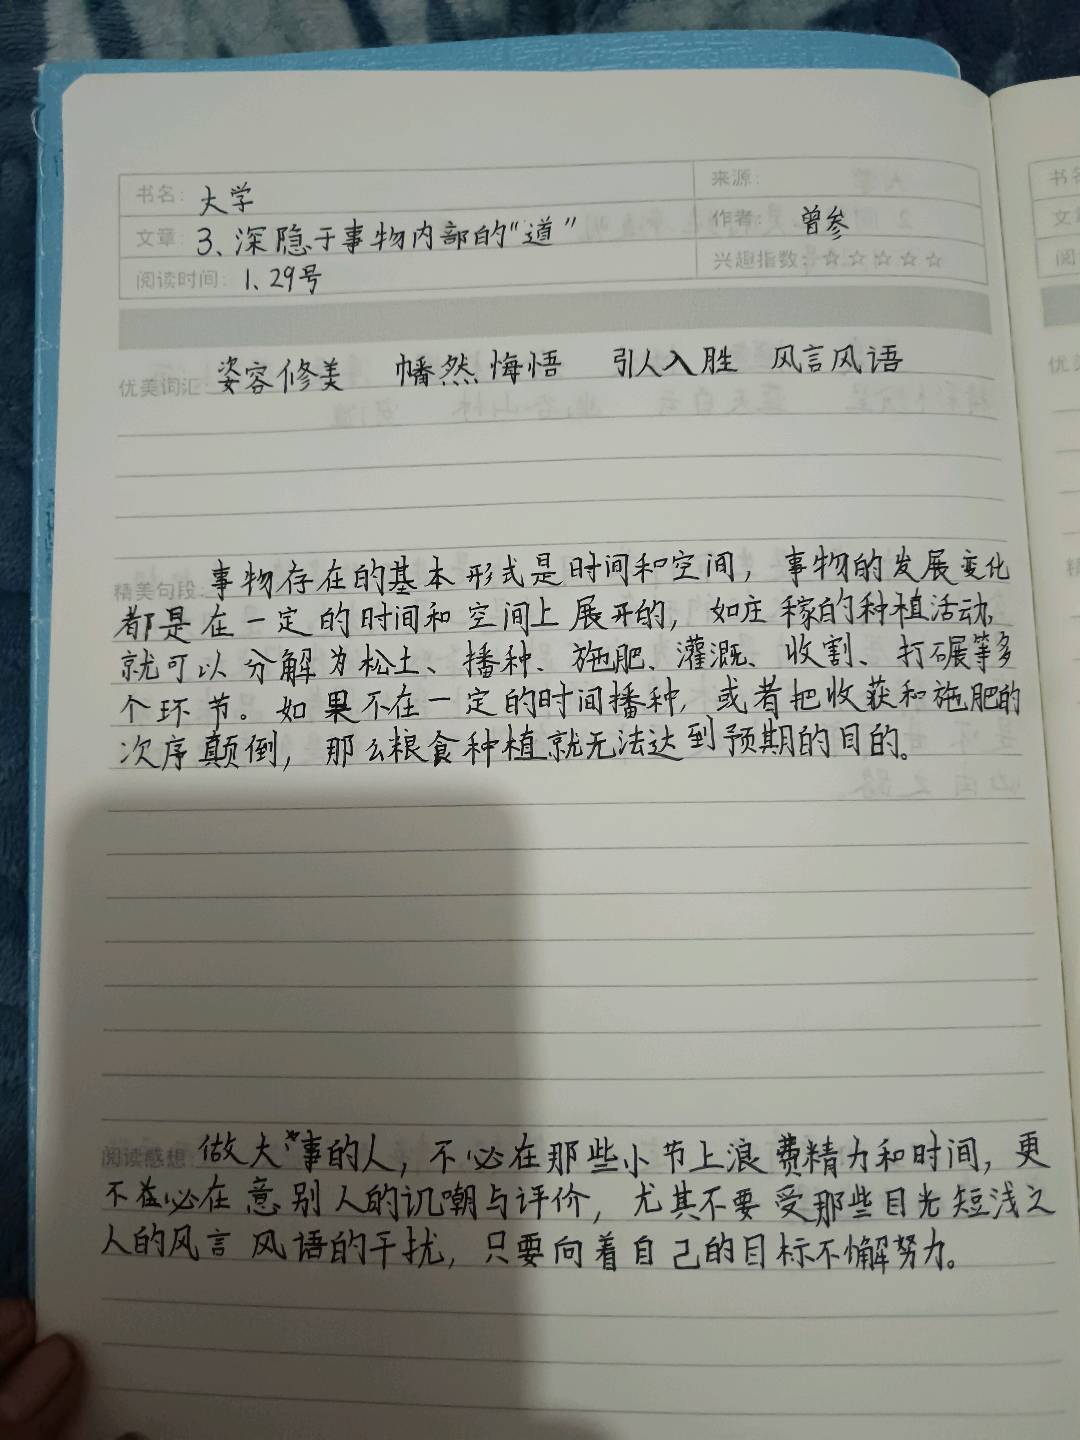 书名: 大学
来源:
文章: 3、深隐于事物内部的“道”
作者: 曾参
阅读时间: 1、29号
兴趣指数: ☆☆☆☆☆
优美词汇: 姿容修美 幡然悔悟 引人入胜 风言风语
精美句段: 事物存在的基本形式是时间和空间，事物的发展变化
都是在一定的时间和空间上展开的，如庄稼的种植活动，
就可以分解为松土、播种、施肥、灌溉、收割、打碾等多
个环节。如果不在一定的时间播种，或者把收获和施肥的
次序颠倒，那么粮食种植就无法达到预期的目的。
阅读感想: 做大事的人，不必在那些小节上浪费精力和时间，更
不必在意别人的讥嘲与评价，尤其不要受那些目光短浅之
人的风言风语的干扰，只要向着自己的目标不懈努力。
书名